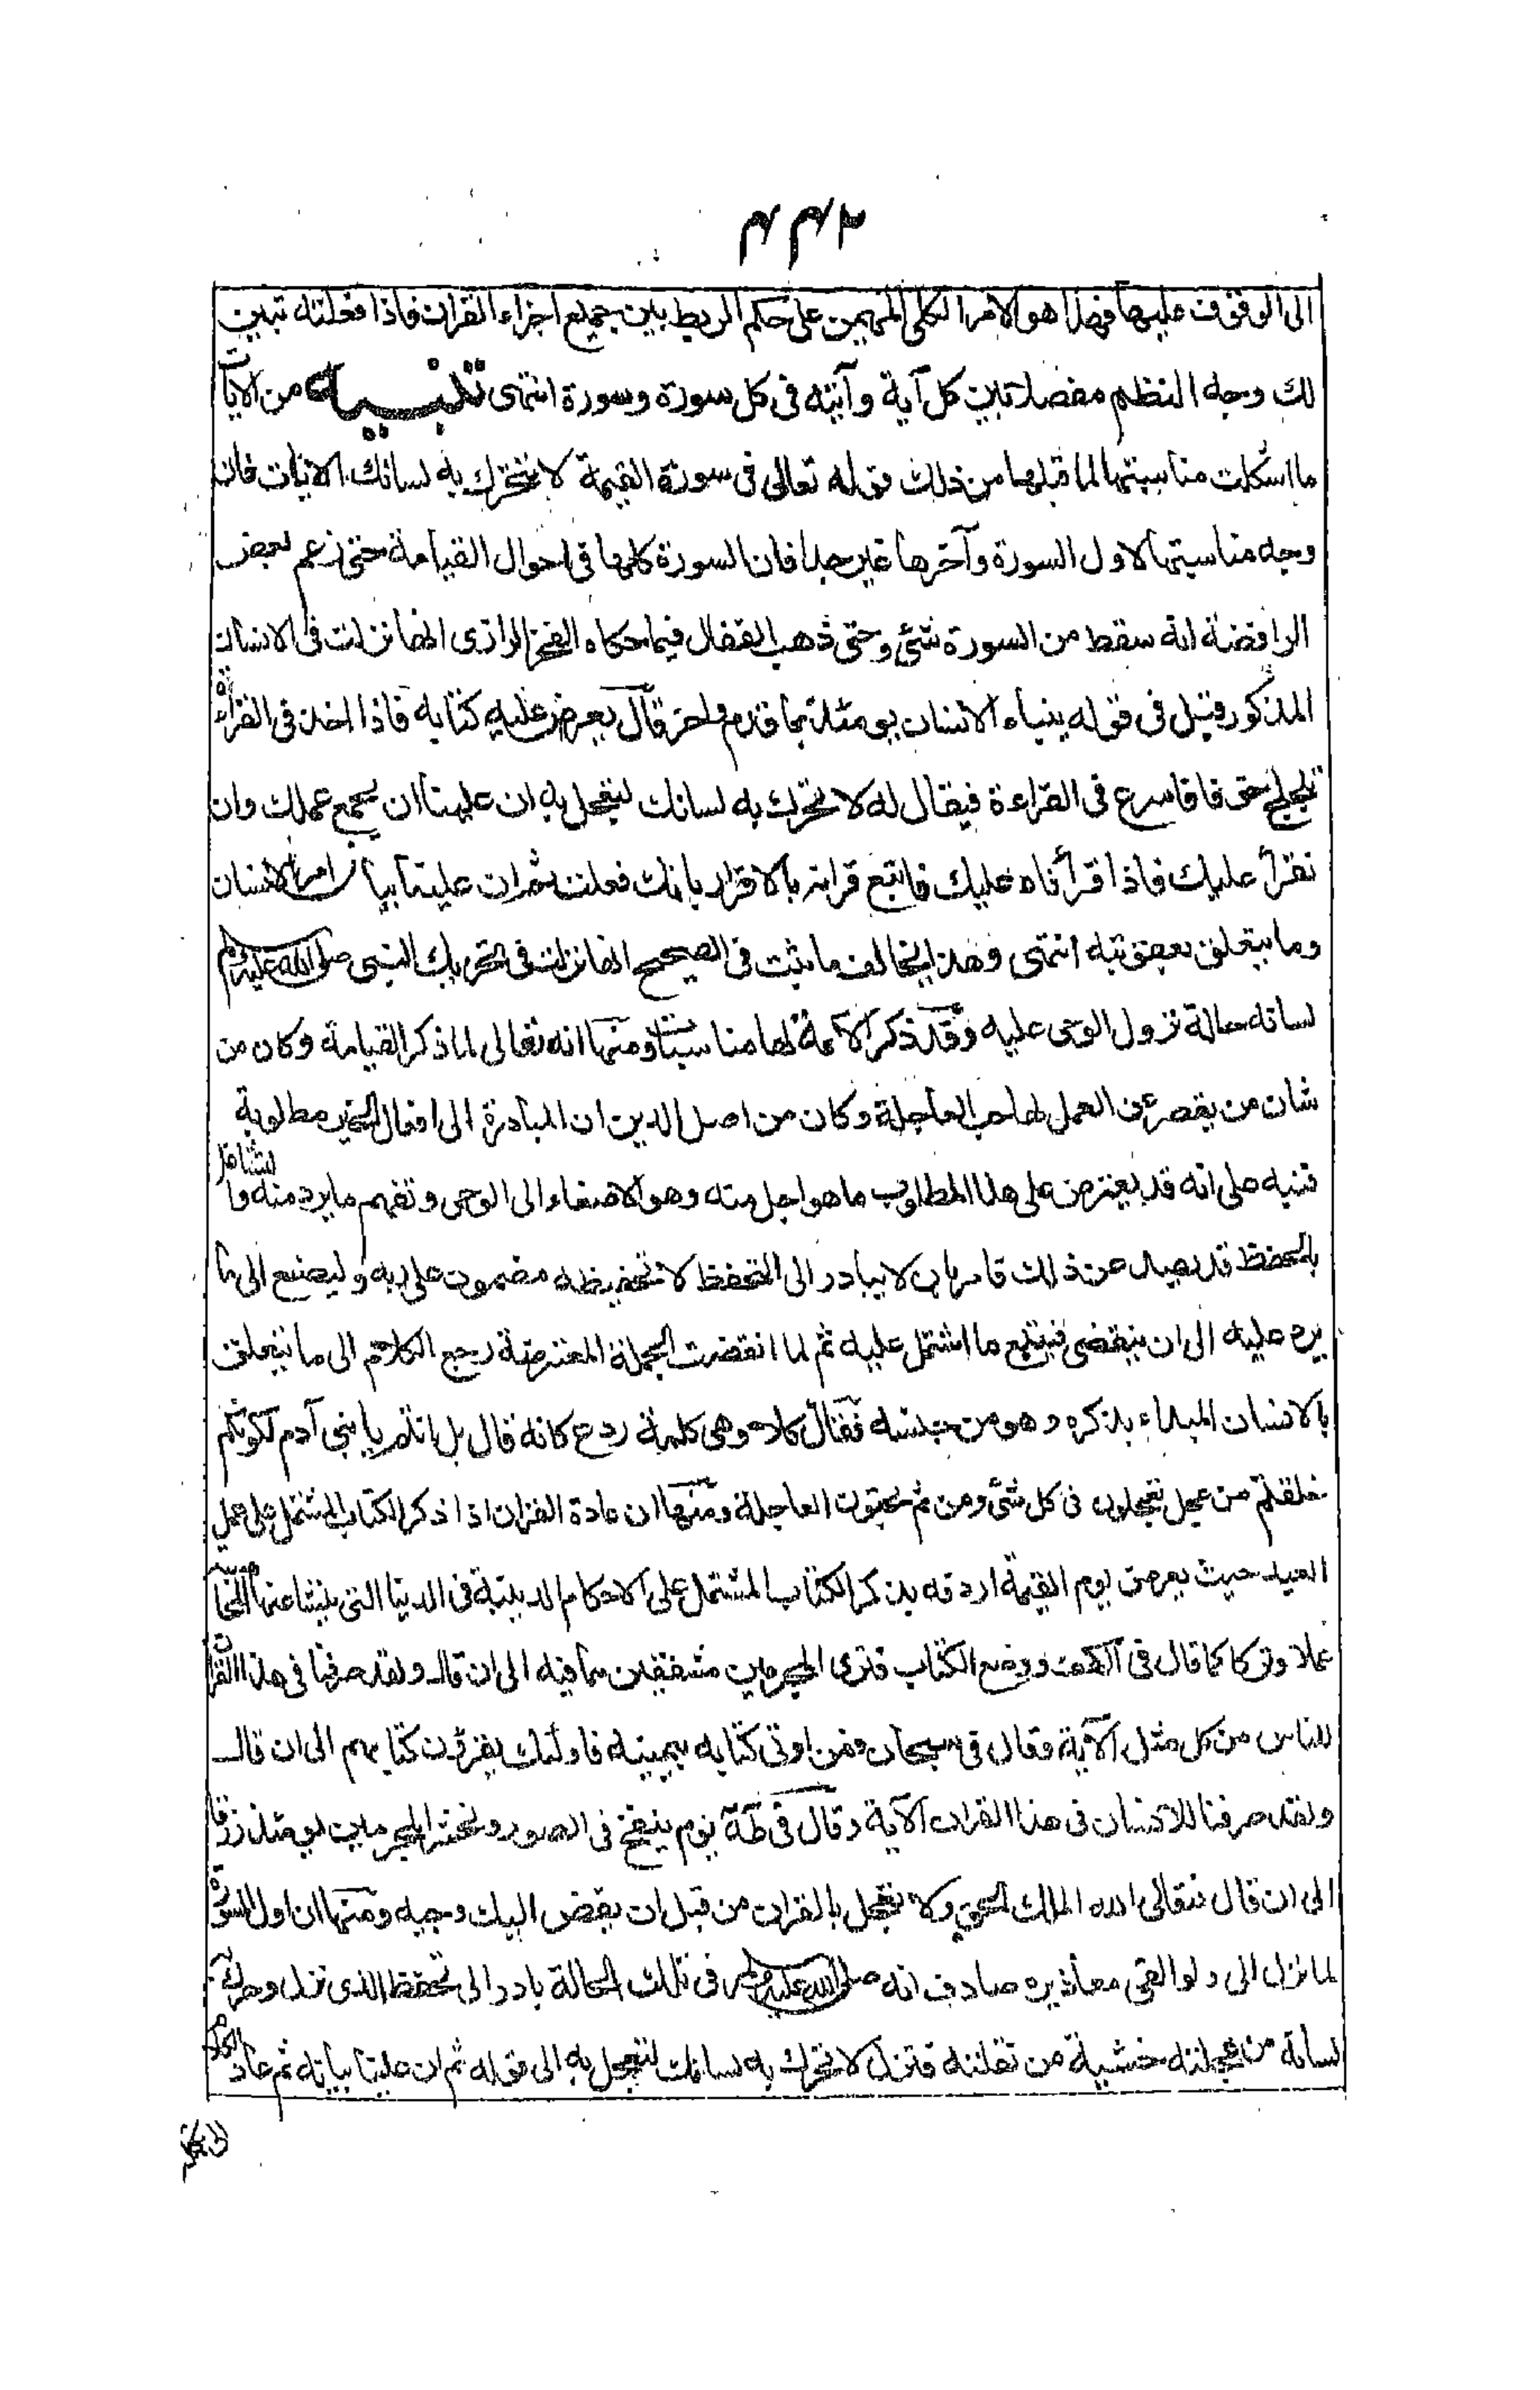 ٢٤٤
الى الوقوف عليها فهذا هو الامر الكلى المهيمن على حكم الربط بين جميع اجزاء القران فاذا فعلته تبين
لك وجه النظم مفصلا بين كل آية وآية فى كل سورة وسورة انتهى تنبيه من الايات
ما اشكلت مناسبتها لما قبلها من ذلك قوله تعالى فى سورة القيمة لا تحرك به لسانك الايات فان
وجه مناسبتها لاول السورة وآخرها عسر جدا فان السورة كلها فى احوال القيامة حتى زعم بعض
الرافضة انه سقط من السورة شئ وحتى ذهب القفال فيما حكاه الفخر الرازى انها نزلت فى الانسان
المذكور قبل فى قوله ينباء الانسان يومئذ بما قدم واخر قال يعرض عليه كتابه فاذا اخذ فى القرأة
تلجلج خوفا فاسرع فى القراءة فيقال له لا تحرك به لسانك لتعجل به ان علينا ان يجمع عملك وان
نقرأ عليك فاذا قرأناه عليك فاتبع قرانه بالاقرار بانك فعلت ثم ان علينا بيان امر الانسان
وما يتعلق بعقوبته انتهى وهذا يخالف ما ثبت فى الصحيح انها نزلت فى تحريك النبى صلى الله عليه وسلم
لسانه حالة نزول الوحى عليه وقد ذكر الائمة لها مناسبات ومنها انه تعالى لما ذكر القيامة وكان من
شان من يقصر عن العمل لها حب العاجلة وكان من اصل الدين ان المبادرة الى افعال الخير مطلوبة
فنبه على انه قد يعترض على هذا المطلوب ما هو اجل منه وهو الاصغاء الى الوحى وتفهم ما يرد منه والتشاغل
بالحفظ قد يصد عن ذلك فامر بان لا يبادر الى التحفظ لان تحفيظه مضمون على ربه وليصغ الى ما
يرد عليه الى ان ينقضى فيتبع ما اشتمل عليه ثم لما انقضت الجملة المعترضة رجع الكلام الى ما يتعلق
بالانسان المبداء بذكره وهو من جنسه فقال كلا وهى كلمة ردع كانه قال بل انتم يا بنى آدم لكونكم
خلقتم من عجل تعجلون فى كل شئ ومن ثم تحبون العاجلة ومنها ان عادة القران اذا ذكر الكتاب المشتمل على عمل
العبد حيث يعرض يوم القيمة اردفه بذكر الكتاب المشتمل على الاحكام الدينية فى الدنيا التى ينشا عنها المحاسبة
عملا وتركا كما قال فى الكهف ووضع الكتاب فترى المجرمين مشفقين مما فيه الى ان قال ولقد صرفنا فى هذا القران
للناس من كل مثل الآية وقال فى سبحان فمن اوتى كتابه بيمينه فاولئك يقرؤن كتابهم الى ان قال
ولقد صرفنا للانسان فى هذا القران الآية وقال فى طه يوم ينفخ فى الصور ونحشر المجرمين يومئذ زرقا
الى ان قال فتعالى الله الملك الحق ولا تعجل بالقران من قبل ان يقضى اليك وحيه ومنها ان اول السورة
لما نزل الى ولو القى معاذيره صادف انه صلى الله عليه وسلم فى تلك الحالة بادر الى تحفظ الذى نزل وحرك به
لسانه من عجلته خشية من تفلته فنزل لا تحرك به لسانك لتعجل به الى قوله ثم ان علينا بيانه ثم عاد الكلام